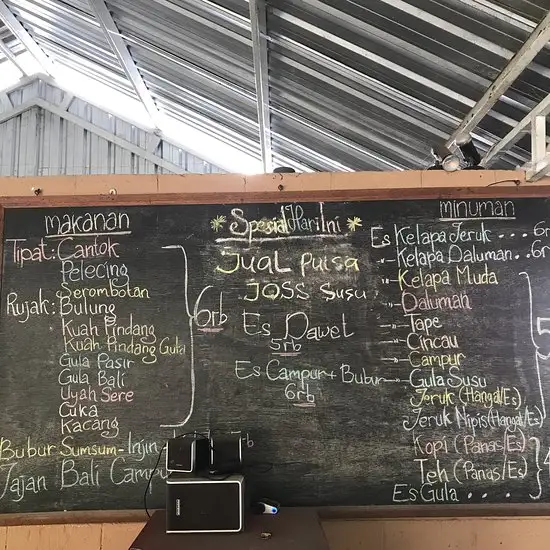 makanan
Tipat: Cantok
Pelecing
Serombotan
Rujak: Bulung
Kuah Pindang
Kuah Pindang Gula
Gula Pasir
Gula Bali
Uyah Sere
Cuka
Kacang
6rb
Bubur Sumsum-Injin
Jajan Bali Campu
Spesial Hari Ini
Jual Pulsa
Joss Susu
Es Dawet
5rb
Es Campur + Bubur
6rb
minuman
Es Kelapa Jeruk . . . 6r
-"- Kelapa Daluman . . 6r
-"- Kelapa Muda
-"- Daluman
-"- Tape
-"- Cincau
-"- Campur
-"- Gula Susu
Jeruk (Hangat/Es)
Jeruk Nipis (Hangat/Es)
5
Kopi (Panas/Es)
Teh (Panas/Es)
Es Gula . . . .